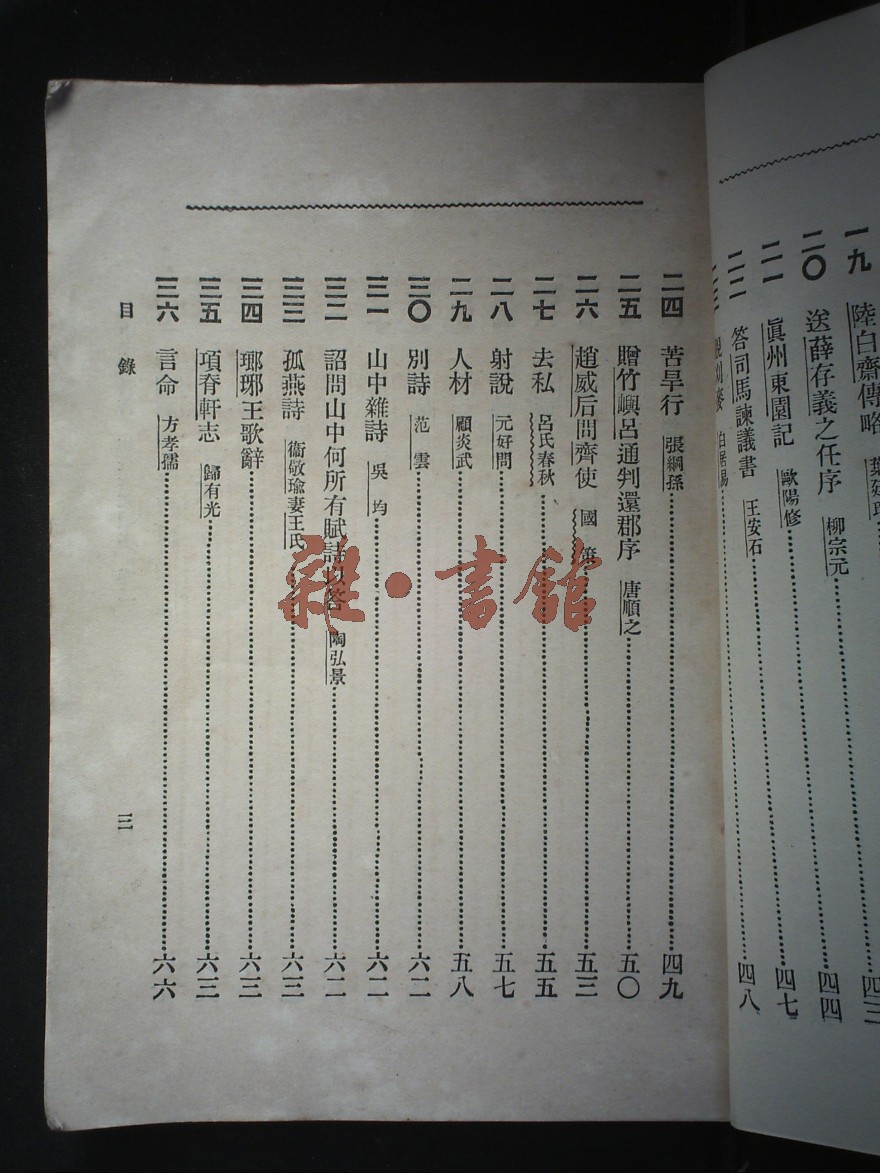 一九 陸白齋傳略 葉廷琯 四三
二〇 送薛存義之任序 柳宗元 四四
二一 眞州東園記 歐陽修 四七
二二 答司馬諫議書 王安石 四八
二三 觀刈麥 白居易
二四 苦旱行 張綱孫 四九
二五 贈竹嶼呂通判還郡序 唐順之 五〇
二六 趙威后問齊使 國策 五三
二七 去私 呂氏春秋 五五
二八 射說 元好問 五七
二九 人材 顧炎武 五八
三〇 別詩 范雲 六二
三一 山中雜詩 吳均 六二
三二 詔問山中何所有賦詩以答 陶弘景 六二
三三 孤燕詩 衞敬瑜妻王氏 六三
三四 瑯琊王歌辭 六三
三五 項脊軒志 歸有光 六三
三六 言命 方孝孺 六六
目錄 三
雜·書館